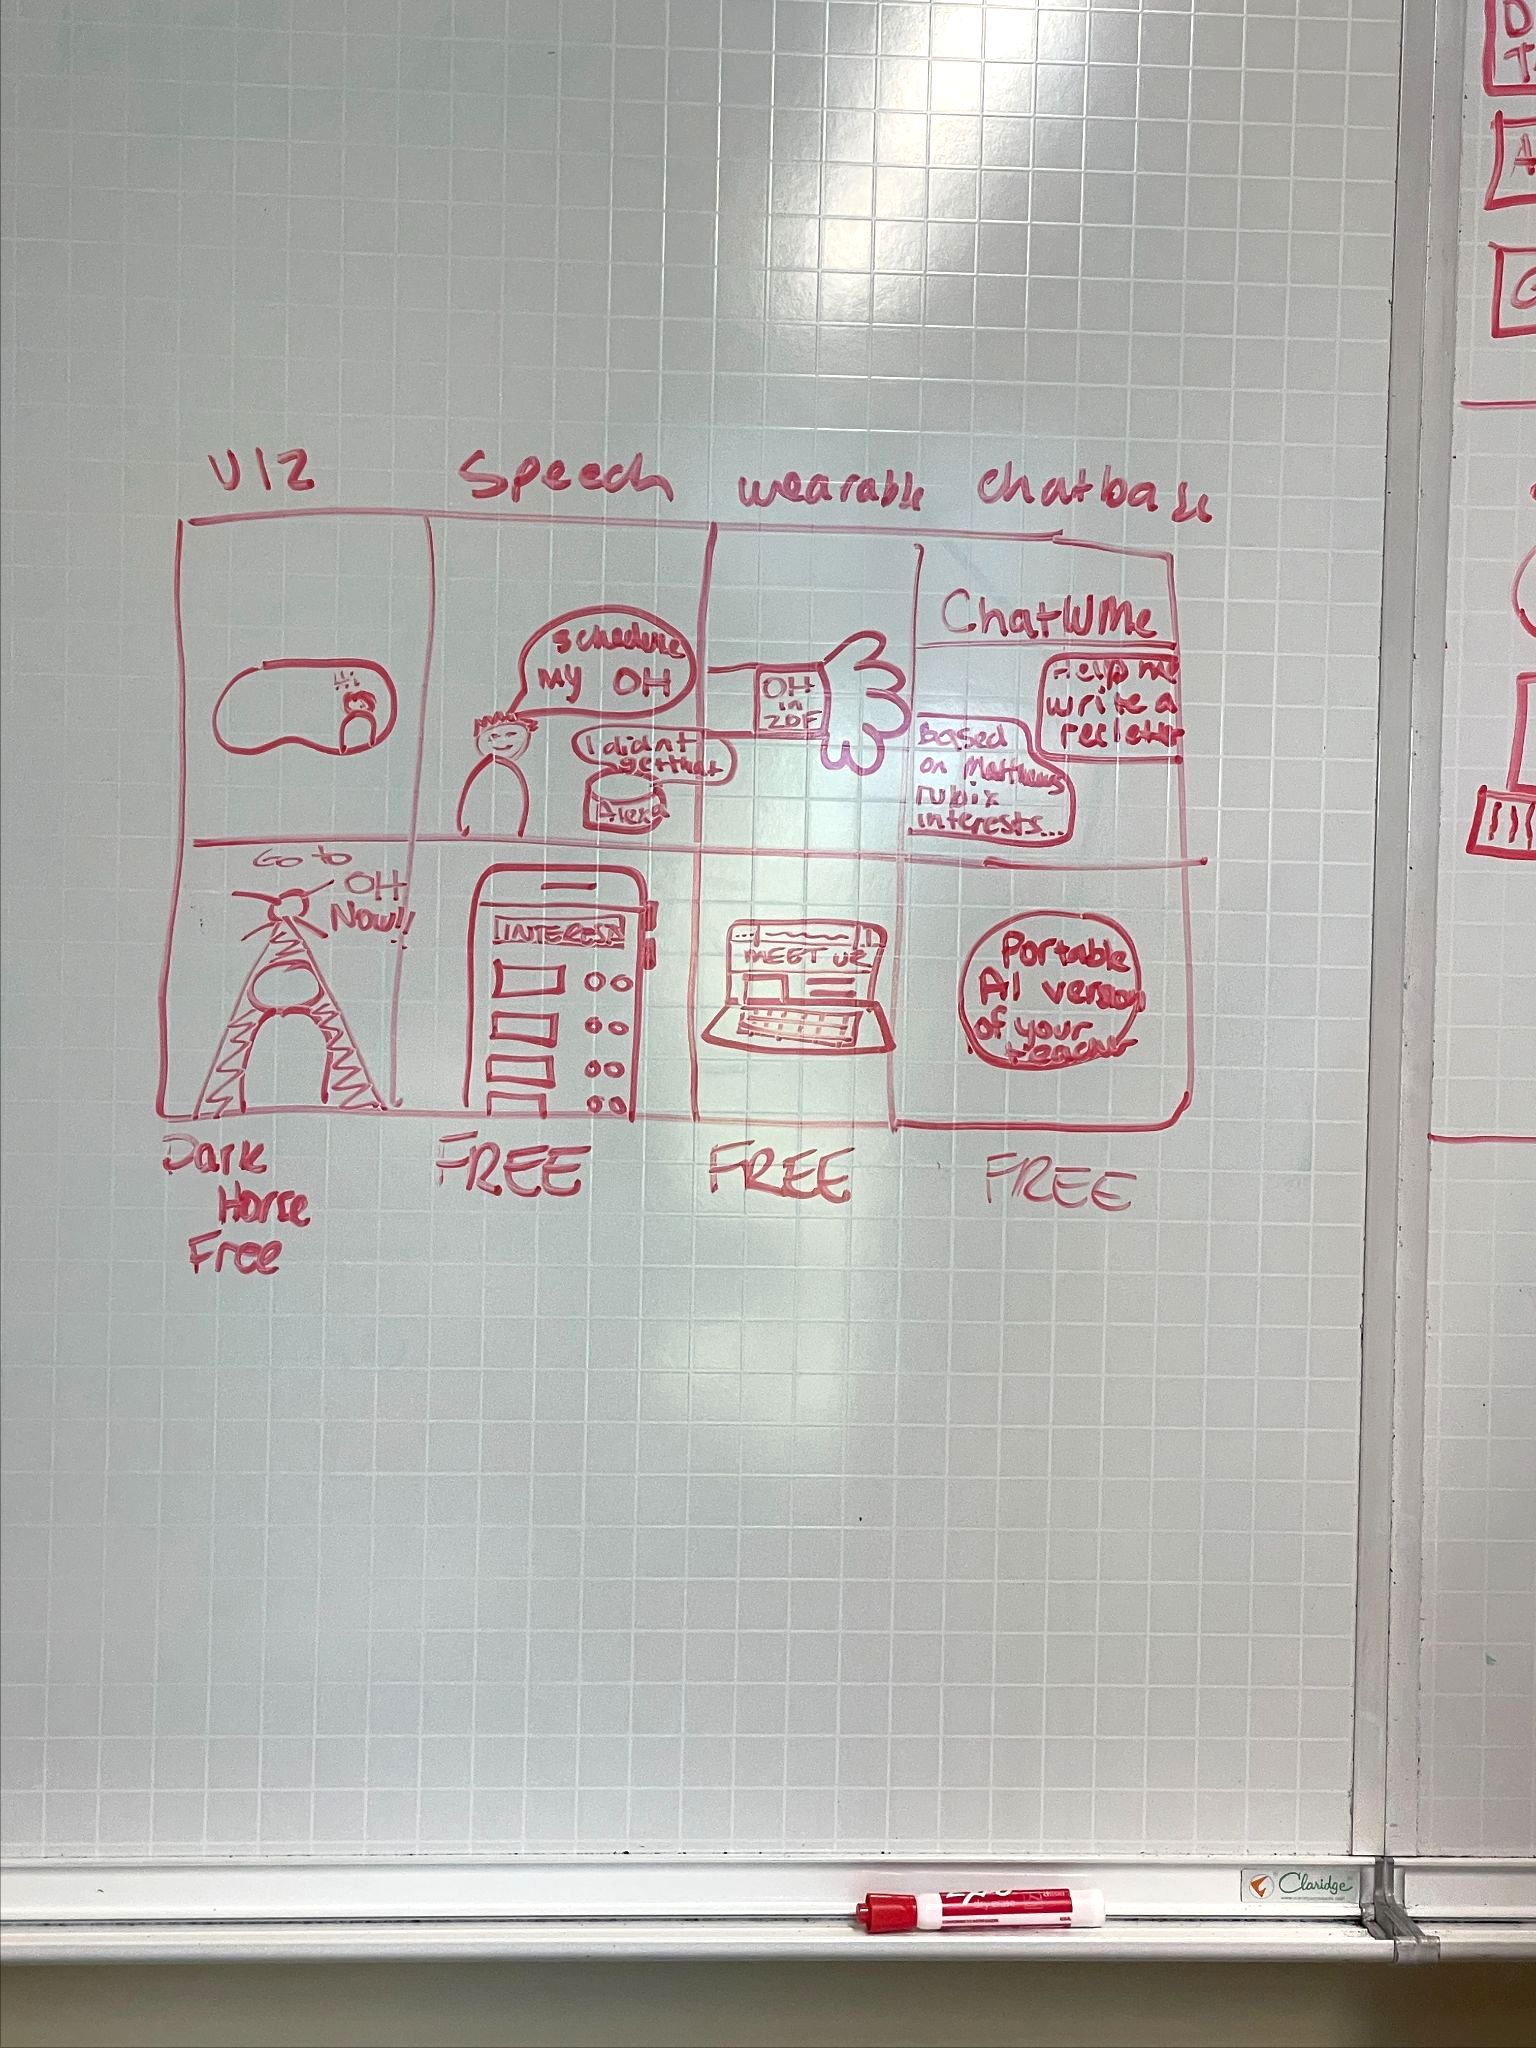 VIZ
Speech
wearable
chatbase
Hi
schedule
my OH
I didnt
get that
Alexa
OH
in
20F
ChatWMe
Help me
write a
recletter
Based
on Matthews
rubix
interests...
Go to
OH
Now!!
INTERESTS
MEET UP
Portable
AI version
of your
teacher
Dark
Horse
Free
FREE
FREE
FREE
Claridge